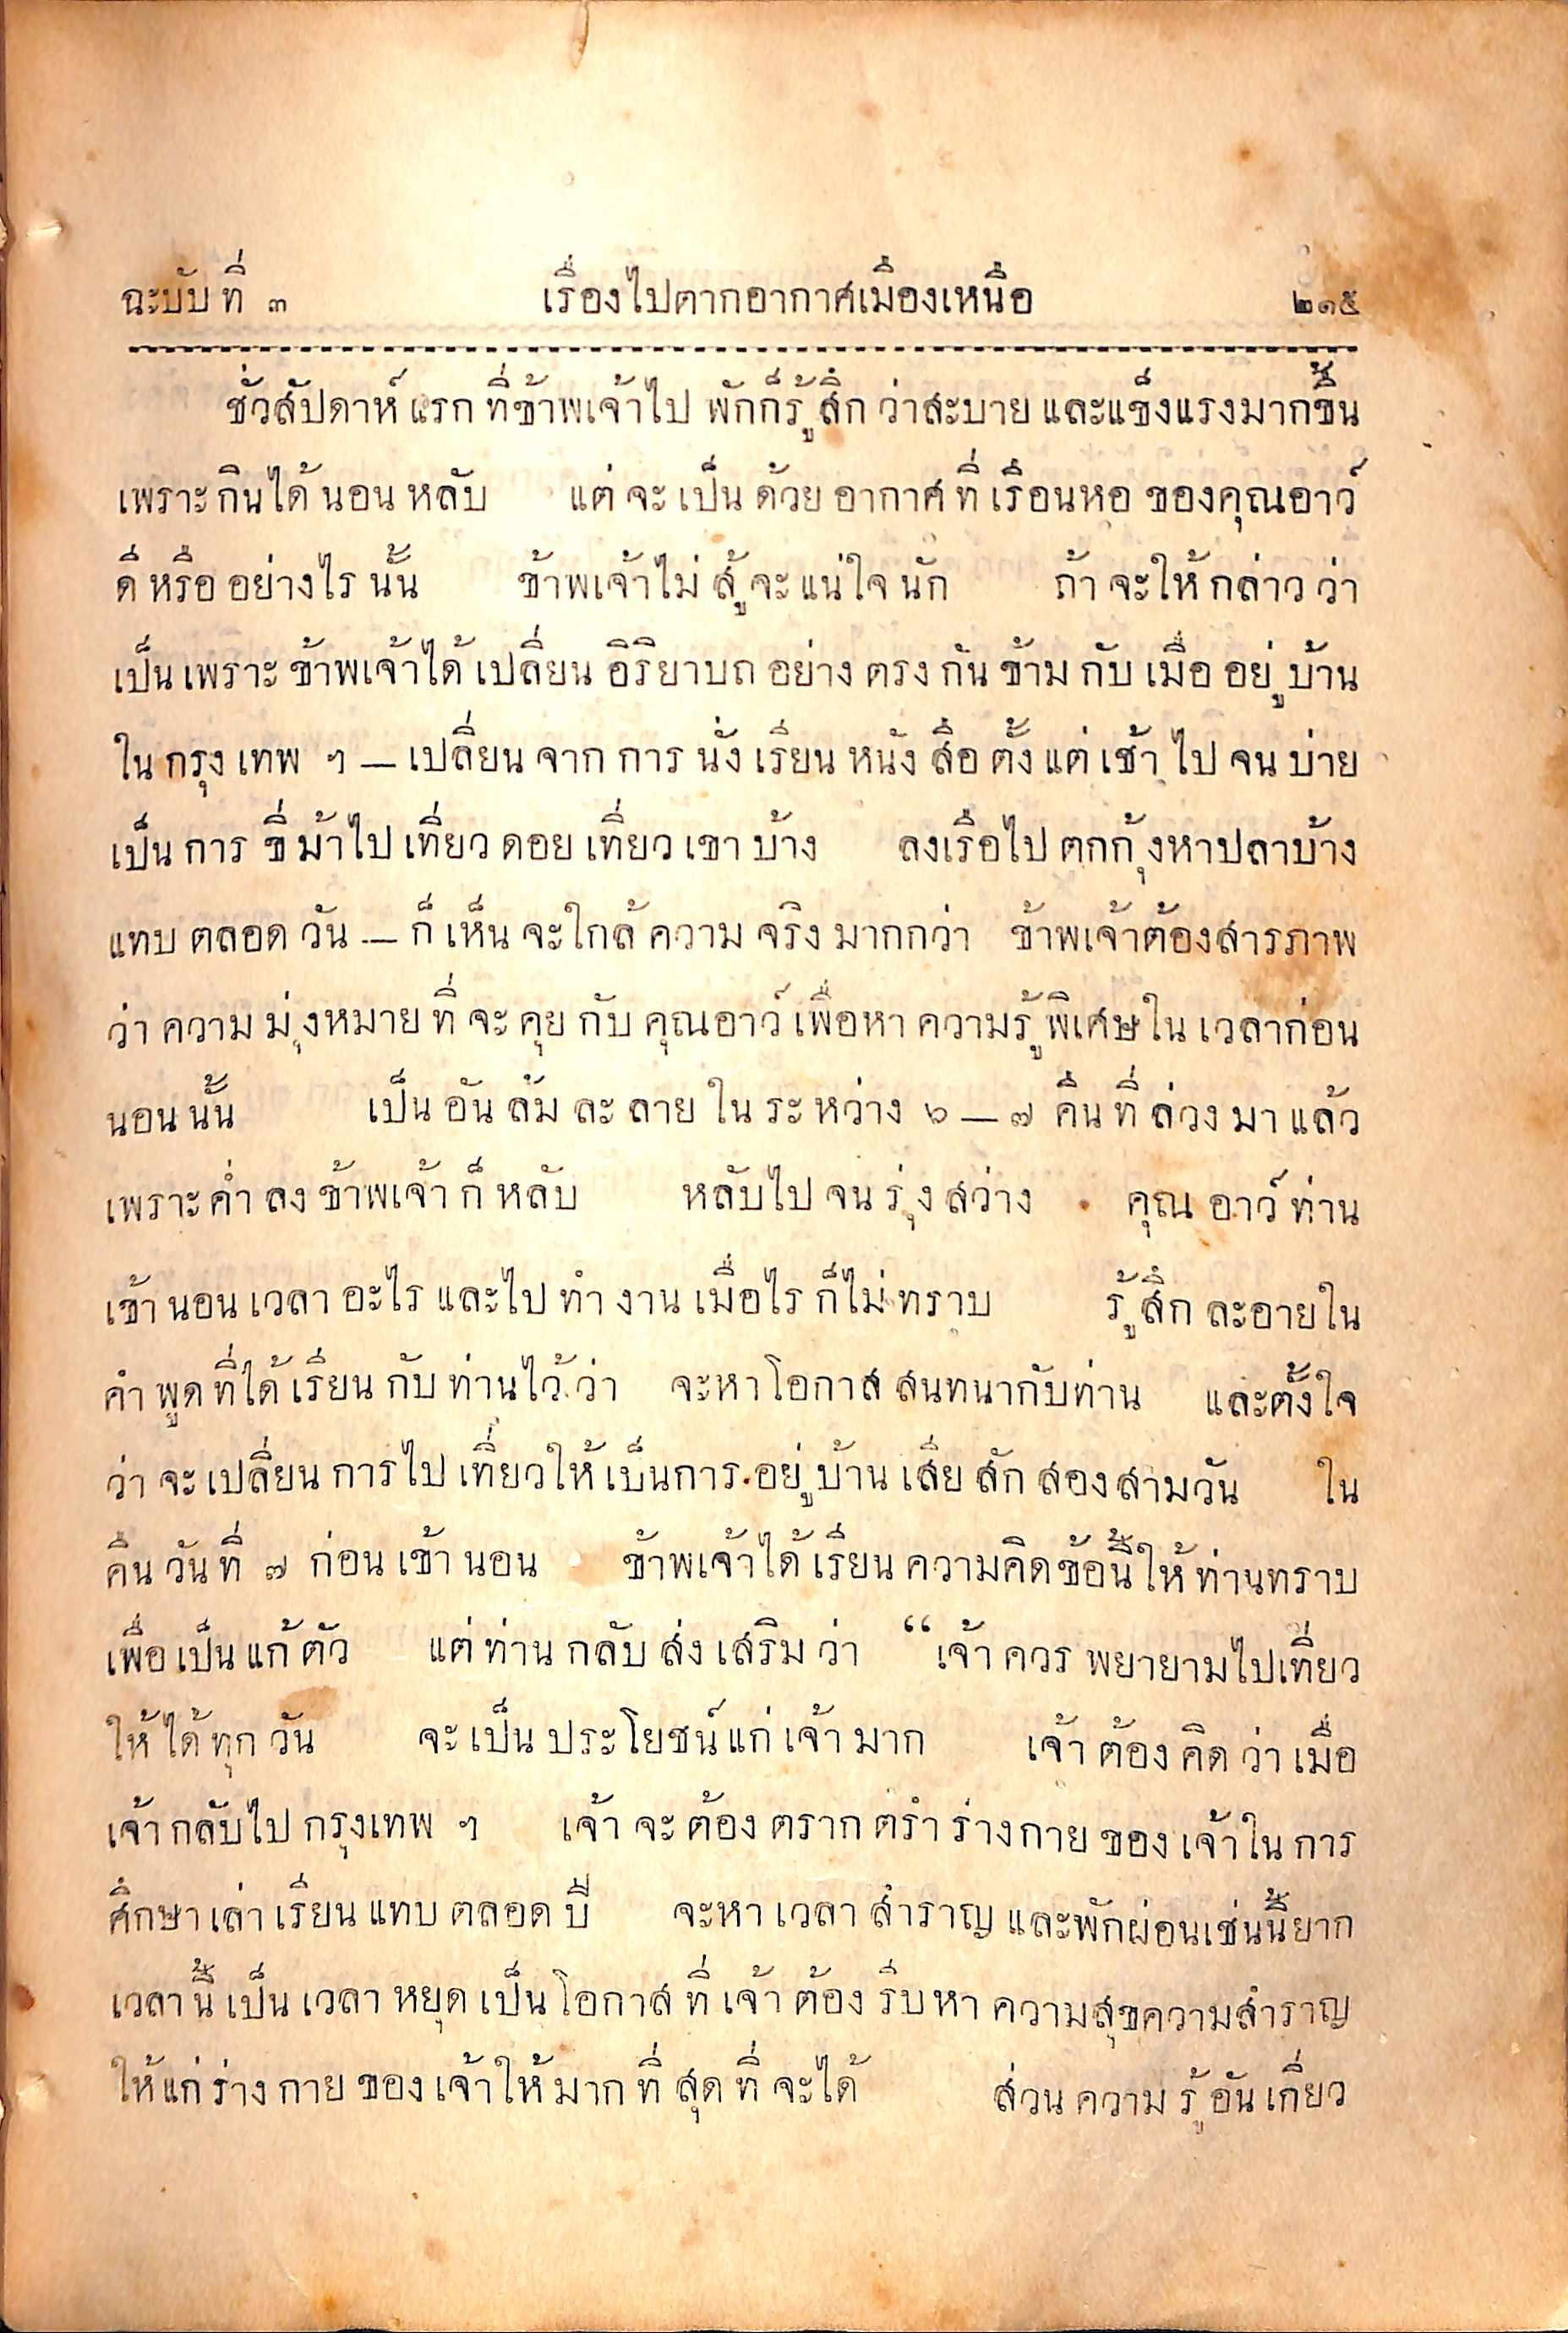 ฉะบับที่ ๓ เรื่องไปตากอากาศเมืองเหนือ ๒๑๕
ชั่วสัปดาห์แรกที่ข้าพเจ้าไปพักก็รู้สึกว่าสะบายและแข็งแรงมากขึ้น
เพราะกินได้นอนหลับ แต่จะเป็นด้วยอากาศที่เรือนหอของคุณอาว์
ดีหรืออย่างไรนั้น ข้าพเจ้าไม่สู้จะแน่ใจนัก ถ้าจะให้กล่าวว่า
เป็นเพราะข้าพเจ้าได้เปลี่ยนอิริยาบถอย่างตรงกันข้ามกับเมื่ออยู่บ้าน
ในกรุงเทพ ฯ — เปลี่ยนจากการนั่งเรียนหนังสือตั้งแต่เช้าไปจนบ่าย
เป็นการขี่ม้าไปเที่ยวดอยเที่ยวเขาบ้าง ลงเรือไปตกกุ้งหาปลาบ้าง
แทบตลอดวัน — ก็เห็นจะใกล้ความจริงมากกว่า ข้าพเจ้าต้องสารภาพ
ว่าความมุ่งหมายที่จะคุยกับคุณอาว์เพื่อหาความรู้พิเศษในเวลาก่อน
นอนนั้น เป็นอันล้มละลายในระหว่าง ๖ — ๗ คืนที่ล่วงมาแล้ว
เพราะค่ำลงข้าพเจ้าก็หลับ หลับไปจนรุ่งสว่าง คุณอาว์ท่าน
เข้านอนเวลาอะไรและไปทำงานเมื่อไรก็ไม่ทราบ รู้สึกละอายใน
คำพูดที่ได้เรียนกับท่านไว้ว่า จะหาโอกาสสนทนากับท่าน และตั้งใจ
ว่าจะเปลี่ยนการไปเที่ยวให้เป็นการอยู่บ้านเสียสักสองสามวัน ใน
คืนวันที่ ๗ ก่อนเข้านอน ข้าพเจ้าได้เรียนความคิดข้อนี้ให้ท่านทราบ
เพื่อเป็นแก้ตัว แต่ท่านกลับส่งเสริมว่า “เจ้าควรพยายามไปเที่ยว
ให้ได้ทุกวัน จะเป็นประโยชน์แก่เจ้ามาก เจ้าต้องคิดว่าเมื่อ
เจ้ากลับไปกรุงเทพ ฯ เจ้าจะต้องตรากตรำร่างกายของเจ้าในการ
ศึกษาเล่าเรียนแทบตลอดปี จะหาเวลาสำราญและพักผ่อนเช่นนี้ยาก
เวลานี้เป็นเวลาหยุดเป็นโอกาสที่เจ้าต้องรีบหาความสุขความสำราญ
ให้แก่ร่างกายของเจ้าให้มากที่สุดที่จะได้ ส่วนความรู้อันเกี่ยว